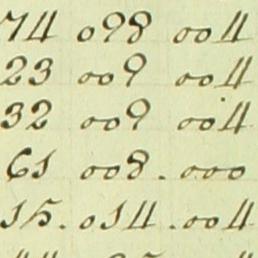 74 098 004
23 009 004
32 009 004
61 008. 000
15. 014. 004